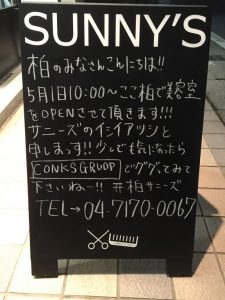 SUNNY'S
柏のみなさんこんにちは!!
5月1日10:00〜ここ柏で美容室
をOPENさせて頂きます!!!
サニーズのイシイアツシと
申しまっす!! 少しでも気になったら
CONKSGRUOPとググってみて
下さいねー!! #柏サニーズ
TEL→04-7170-0067